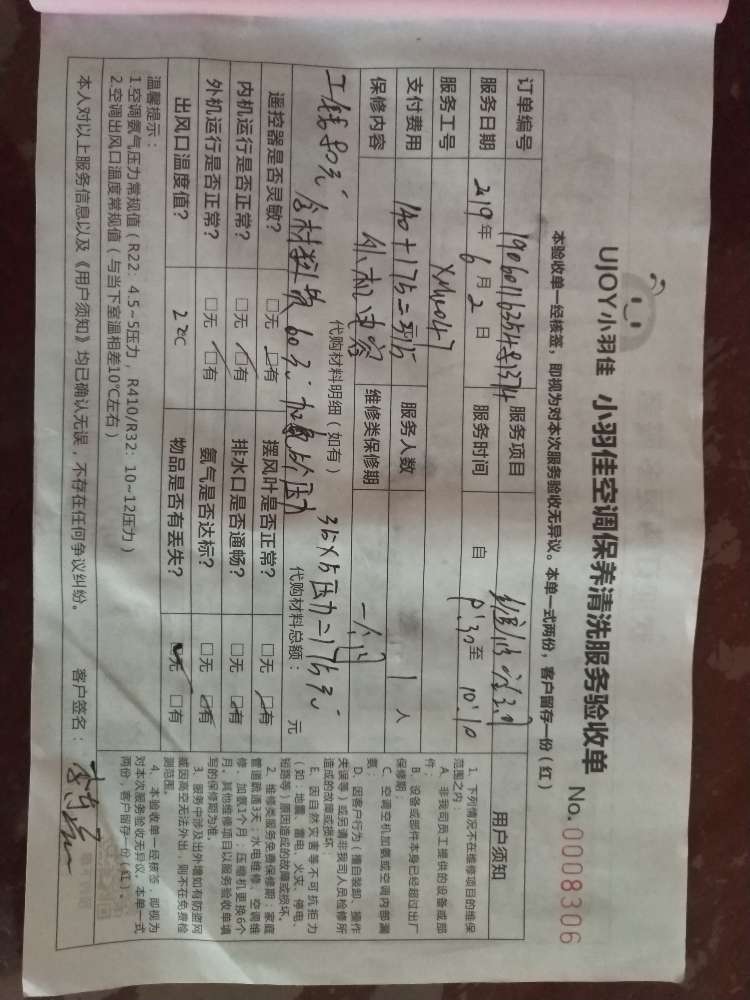 UJOY小羽佳 小羽佳空调保养清洗服务验收单
No.0008306
本验收单一经核签，即视为对本次服务验收无异议。本单一式两份，客户留存一份（红）
订单编号 服务项目
服务日期 2019年6月2日 服务时间 自9:30至10:10
服务工号 XM1047
支付费用 140+175=315 服务人数 1人
保修内容 维修类保修期 一个月
代购材料明细（如有） 代购材料总额： 元
工钱80元 含材料费60元 加氟5个压力 35×5压力=175元
遥控器是否灵敏？ □无 □有 摆风叶是否正常？ □无 □有
内机运行是否正常？ □无 □有 排水口是否通畅？ □无 □有
外机运行是否正常？ □无 □有 氨气是否达标？ □无 □有
出风口温度值？ 2℃ 物品是否有丢失？ □无 □有
温馨提示：
1.空调氨气压力常规值（R22：4.5~5压力，R410/R32：10~12压力）
2.空调出风口温度常规值（与当下室温相差10℃左右）
本人对以上服务信息以及《用户须知》均已确认无误，不存在任何争议纠纷。 客户签名：
用户须知
1、下列情况不在维修项目的维保
范围之内：
A、非我司员工提供的设备或部
件；
B、设备或部件本身已经超过出厂
保修期；
C、空调空机加氨或空调内部漏
氨；
D、因客户行为（擅自装卸、操作
失误等）或另请非我司人员检修所
造成的故障或损坏；
E、因自然灾害等不可抗拒力
（如：地震、雷电、火灾、停电、
短路等）原因造成的故障或损坏。
2、维修类服务免费保修期：家庭
管道疏通3天；水电维修、空调维
修、加氨1个月；压缩机更换6个
月。其他维修项目以服务验收单填
写的保修期为准。
3、服务中涉及出外墙如有防盗网
或因高空无法外出，则不在免费检
测范围。
4、本验收单一经核签，即视为
对本次服务验收无异议。本单一式
两份，客户留存一份（红）。